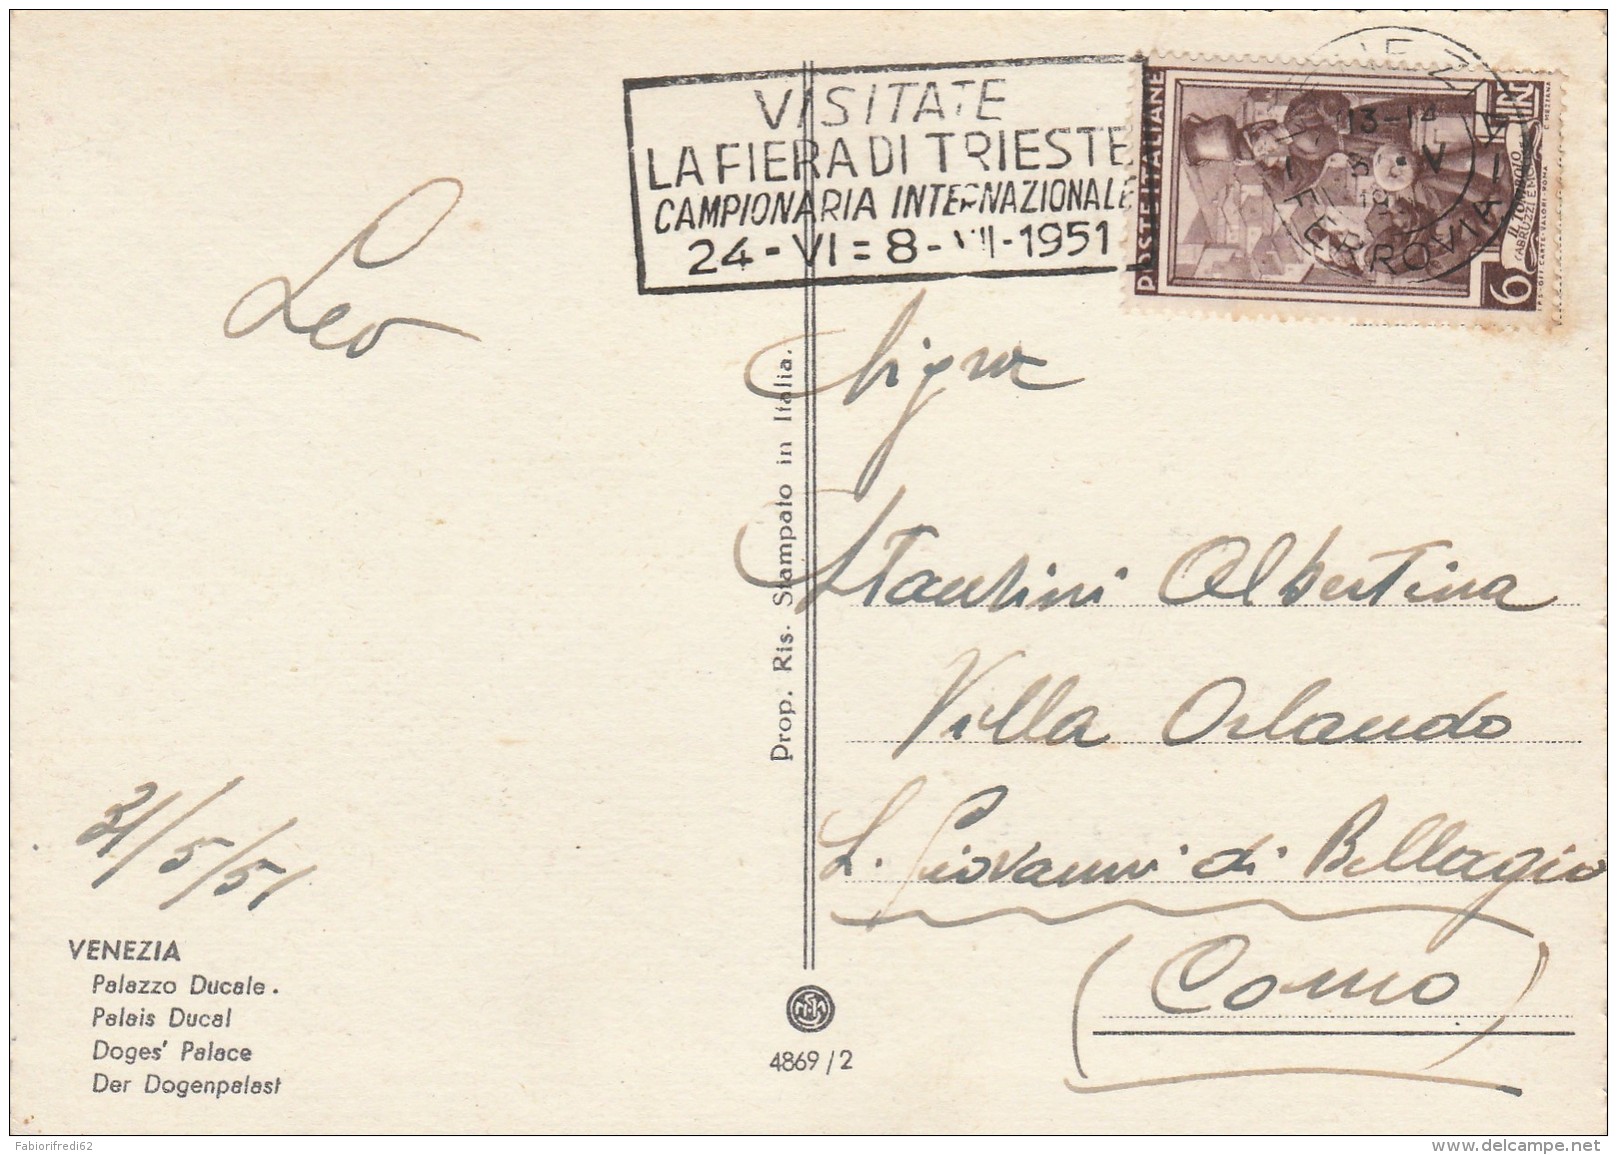 VISITATE
LA FIERA DI TRIESTE
CAMPIONARIA INTERNAZIONALE
24-VI=8-VII-1951
POSTE ITALIANE
13-14
FERROVIA
6
LIRE
IL TOMBOLO
ABRUZZI E MOLISE
C. MEZZANA
Leo
Sigra
Stantini Albertina
Villa Orlando
S. Giovanni di Bellagio
(Como)
31/5/51
Prop. Ris. Stampato in Italia.
VENEZIA
Palazzo Ducale.
Palais Ducal
Doges' Palace
Der Dogenpalast
4869/2
Fabiorifredi62
delcampe.net